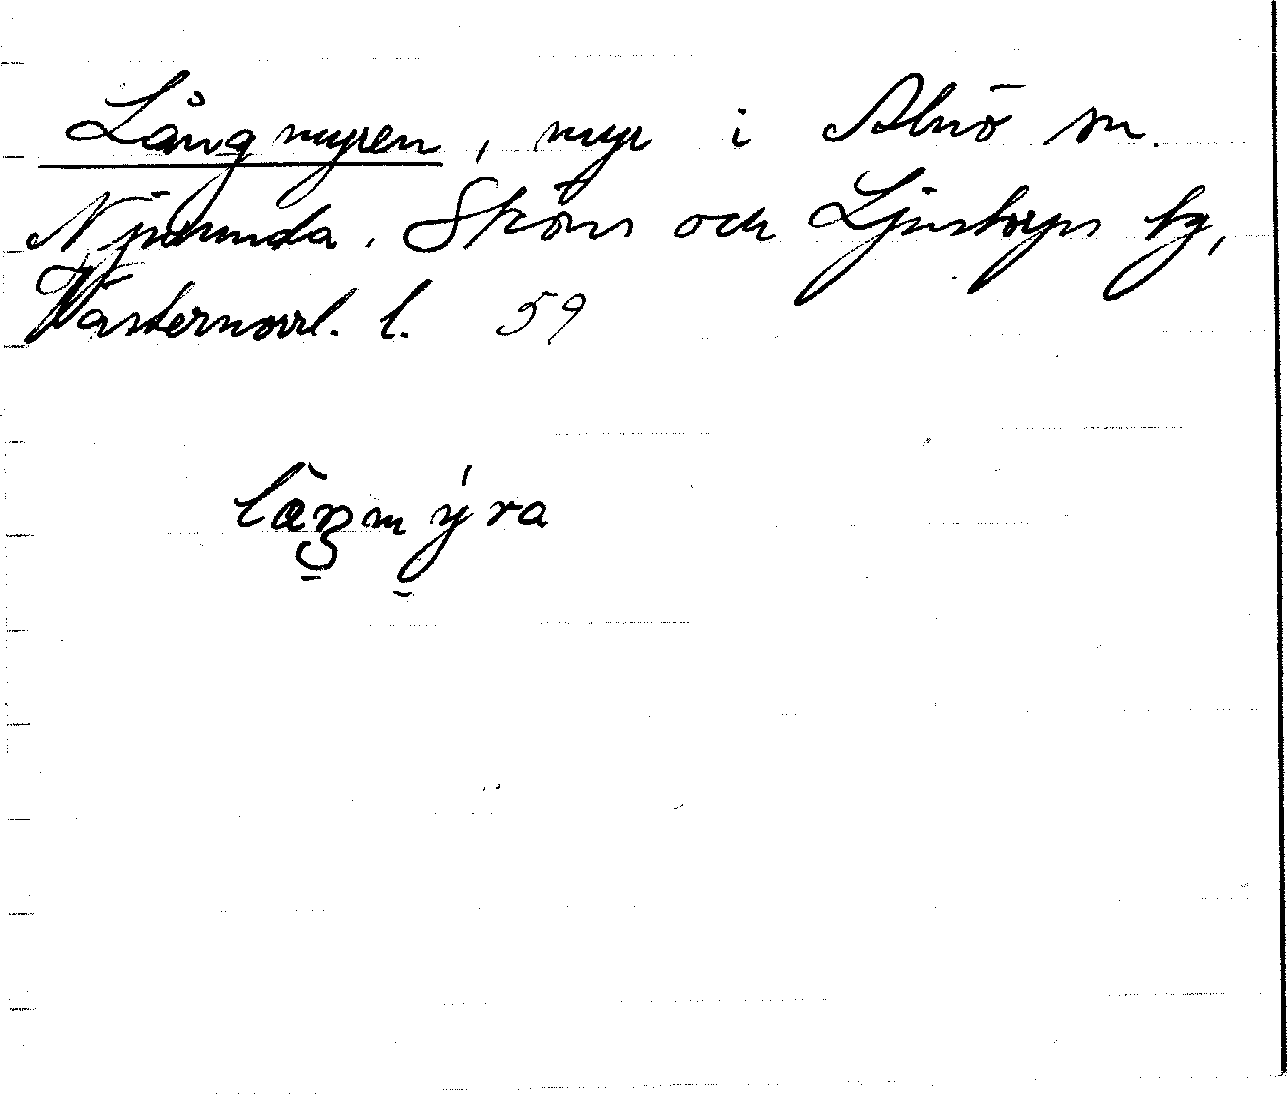 Långmyren, myr i Alnö sn.
Njurunda, Sköns och Ljustorps tg,
Västernorrl. l. 59